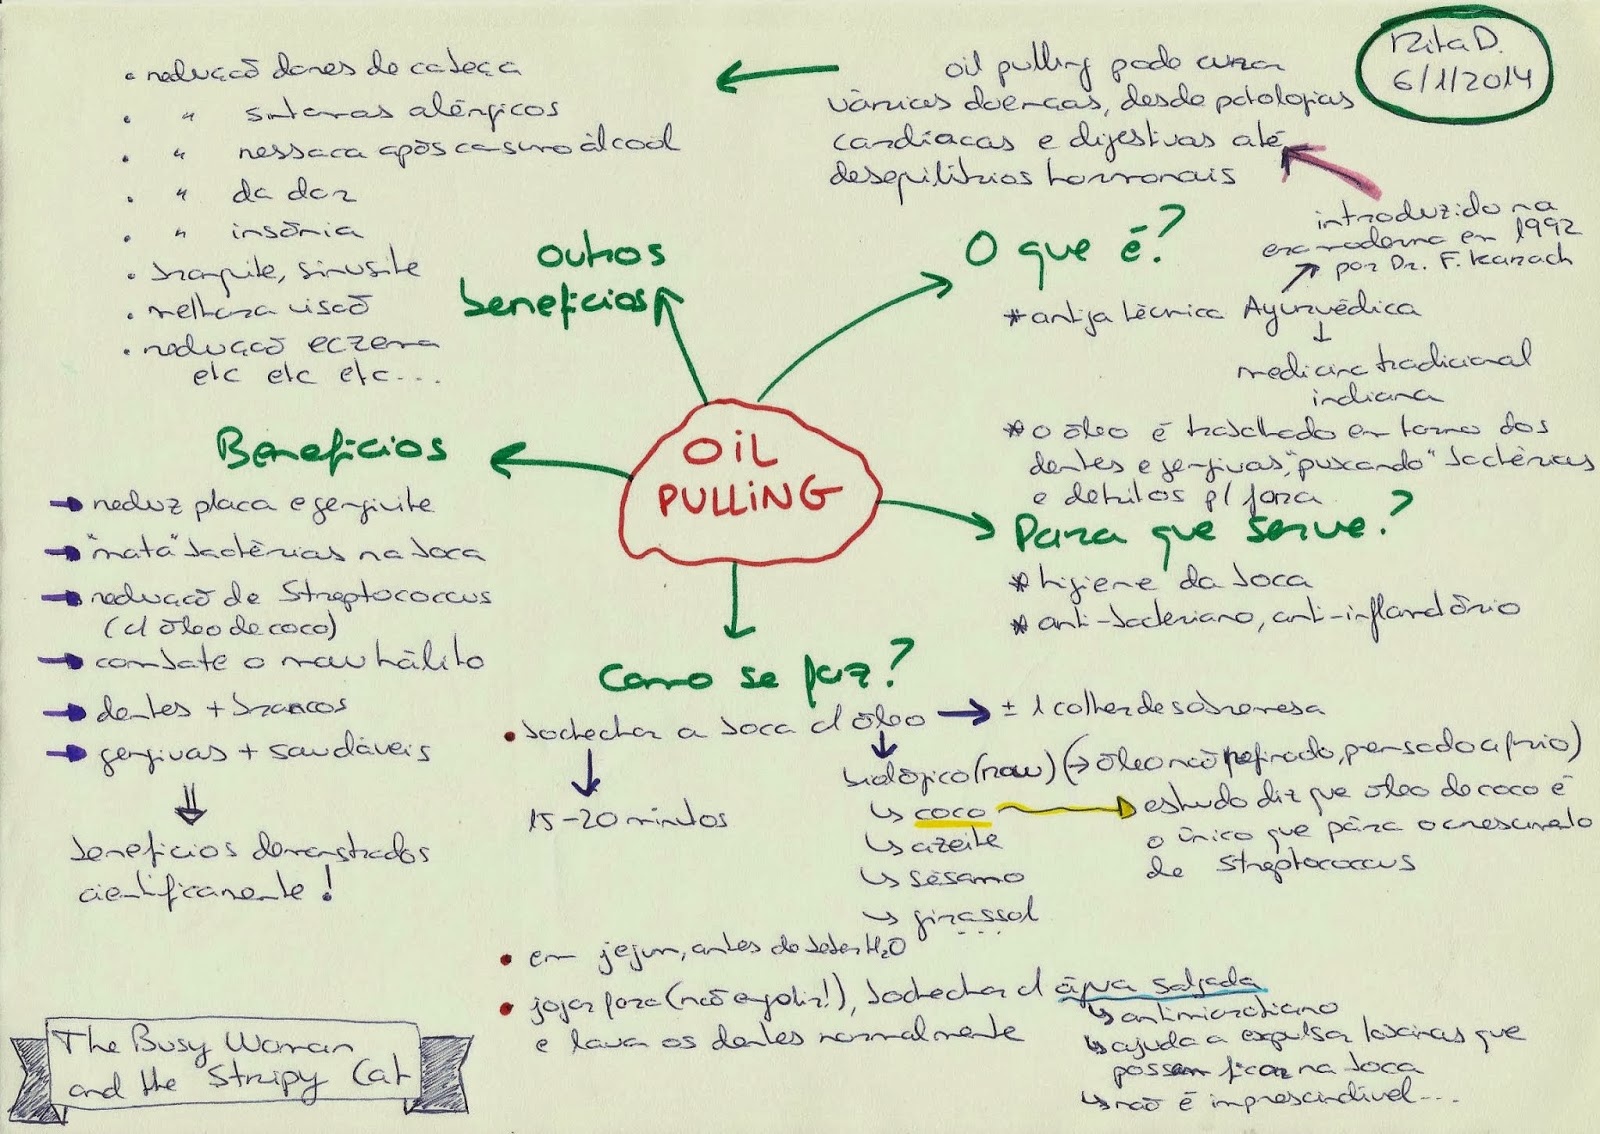 Rita D.
6/1/2014
OIL
PULLING
O que é?
* antiga técnica Ayurvédica
medicina tradicional
indiana
introduzido na
era moderna em 1992
por Dr. F. Karach
oil pulling pode curar
várias doenças, desde patologias
cardíacas e digestivas até
desequilíbrios hormonais
* o óleo é bochechado em torno dos
dentes e gengivas, "puxando" bactérias
e detritos p/ fora
Para que serve?
* higiene da boca
* anti-bacteriano, anti-inflamatório
Como se faz?
• bochechar a boca c/ óleo → ± 1 colher de sobremesa
15-20 minutos
biológico (raw) (→ óleo não refinado, prensado a frio)
↳ coco
estudo diz que óleo de coco é
o único que pára o crescimento
de Streptococcus
↳ azeite
↳ sésamo
↳ girassol
...
• em jejum, antes de beber H2O
• jogar fora (não engolir!), bochechar c/ água salgada
e lava os dentes normalmente
↳ antimicrobiano
↳ ajuda a expulsar toxinas que
possam ficar na boca
↳ não é imprescindível...
Benefícios
→ reduz placa e gengivite
→ "mata" bactérias na boca
→ redução de Streptococcus
(c/ óleo de coco)
→ combate o mau hálito
→ dentes + brancos
→ gengivas + saudáveis
benefícios demonstrados
cientificamente!
outros
benefícios
• redução dores de cabeça
• " sintomas alérgicos
• " ressaca após consumo álcool
• " da dor
• " insónia
• bronquite, sinusite
• melhora visão
• redução eczema
etc etc etc...
The Busy Woman
and the Stripy Cat